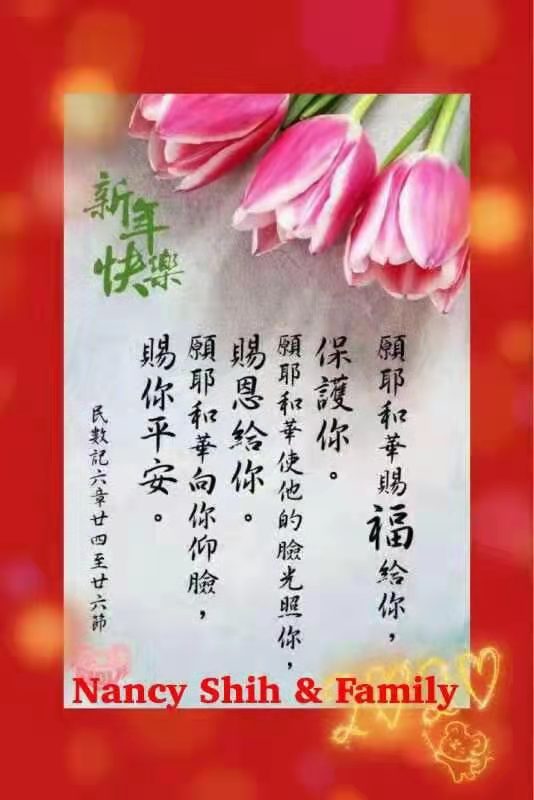 新年
快樂
願耶和華賜福給你，
保護你。
願耶和華使他的臉光照你，
賜恩給你。
願耶和華向你仰臉，
賜你平安。
民數記六章廿四至廿六節
Nancy Shih & Family
2020